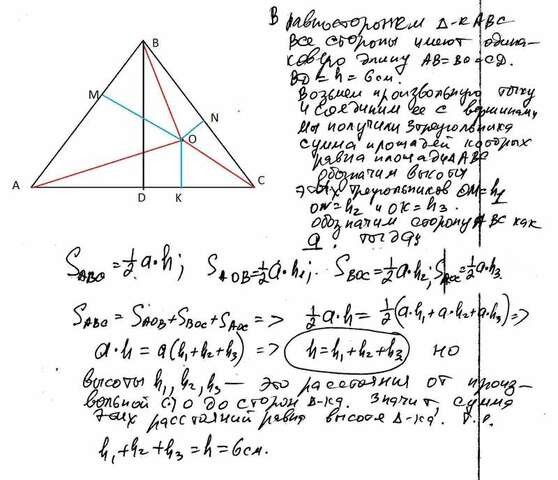 В равностороннем Δ-ке ABC
все стороны имеют одина-
ковую длину AB=BC=CD.
BD = h = 6см.
Возьмем произвольную точку
и соединим ее с вершинами
мы получили 3 треугольника
сумма площадей которых
равна площади Δ ABC
обозначим высоты
этих треугольников OM=h1
ON=h2 и OK=h3.
обозначим сторону ABC как
a. тогда:
B
M
N
O
A
D
K
C
S_ABC = 1/2 a·h; S_AOB = 1/2 a·h1; S_BOC = 1/2 a·h2; S_AOC = 1/2 a·h3
S_ABC = S_AOB + S_BOC + S_AOC => 1/2 a·h = 1/2 (a·h1 + a·h2 + a·h3) =>
a·h = a(h1+h2+h3) => h=h1+h2+h3 но
высоты h1, h2, h3 – это расстояния от произ-
вольной О до сторон Δ-ка. Значит сумма
этих расстояний равна высоте Δ-ка.
h1 + h2 + h3 = h = 6см.